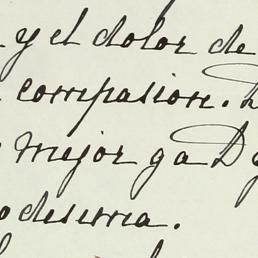 y el dolor de
compasion.
mejor ga D